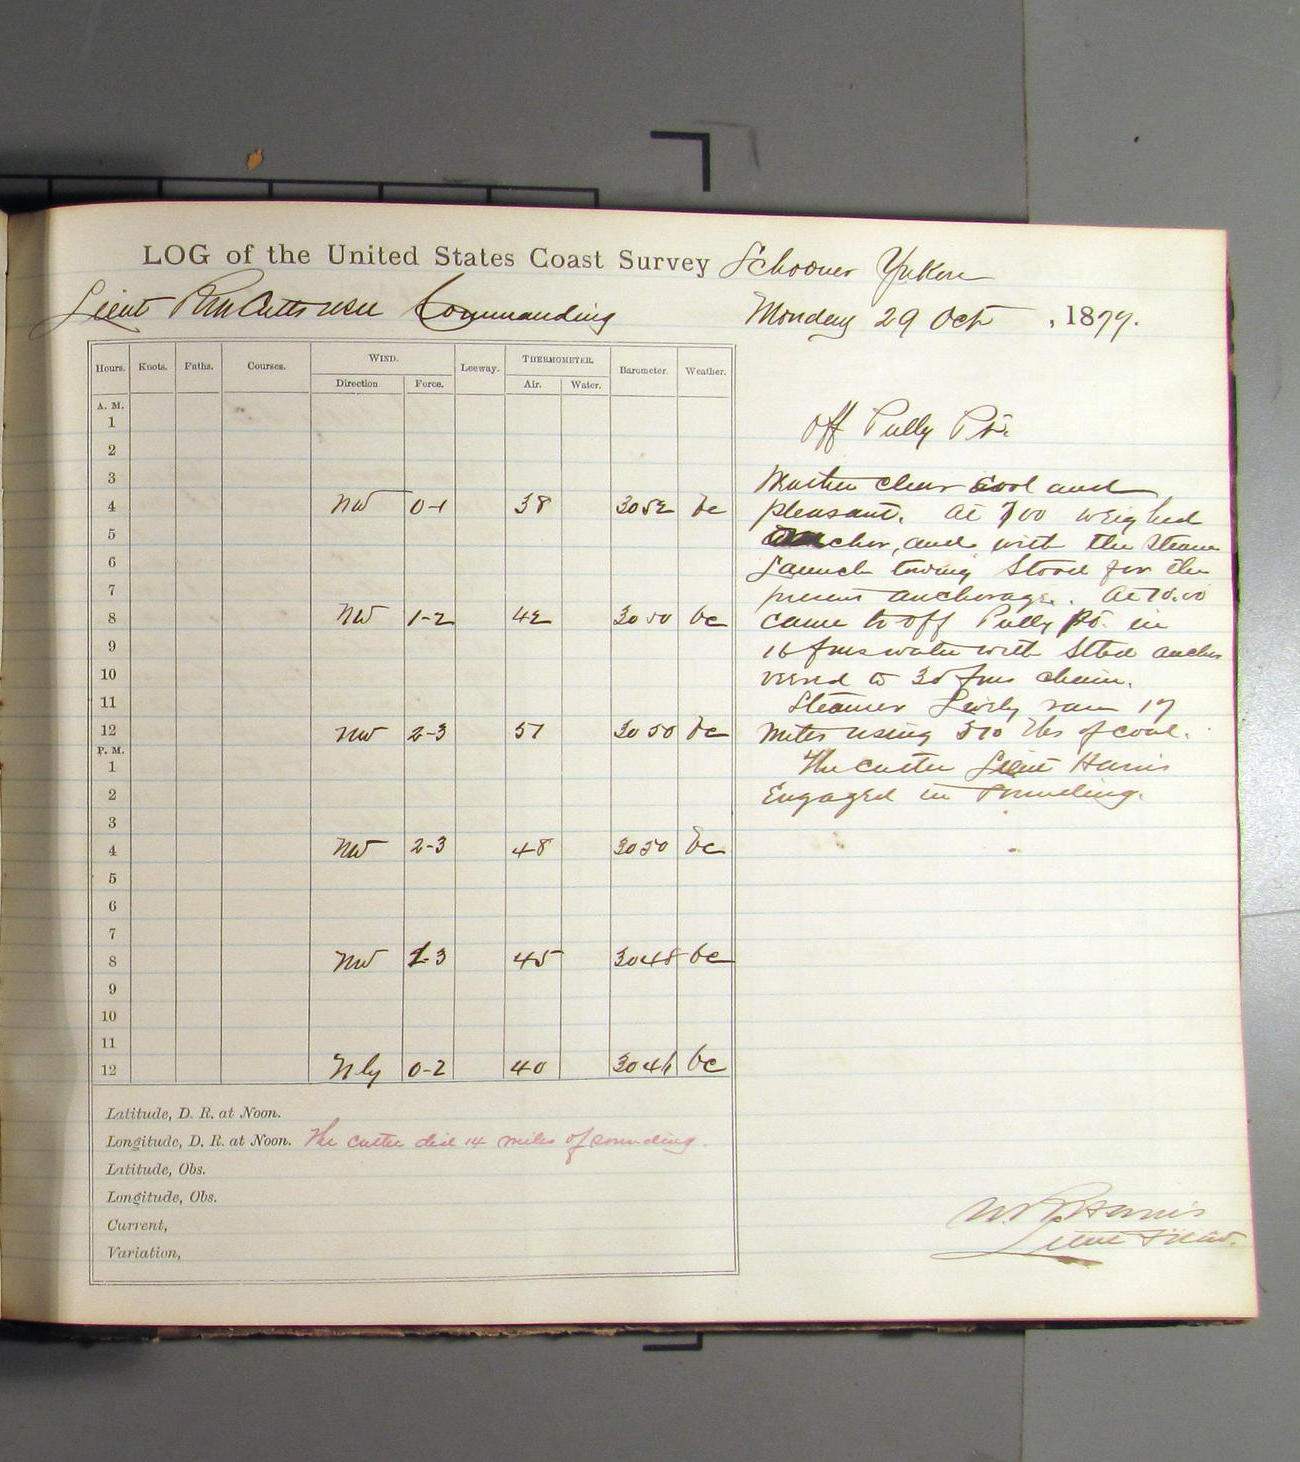 LOG of the United States Coast Survey Schooner Yukon
Lieut Commanding
Monday 29 Oct , 1877.
Hours. Knots. Faths. Courses. WIND. Leeway. THERMOMETER. Barometer. Weather.
Direction Force. Air. Water.
A. M.
1
2
3
4 NW 0-1 38 3052 bc
5
6
7
8 NW 1-2 42 3050 bc
9
10
11
12 NW 2-3 57 3050 bc
P. M.
1
2
3
4 NW 2-3 48 3050 bc
5
6
7
8 NW 3 45 3048 bc
9
10
11
12 Nly 0-2 40 3046 bc
Latitude, D. R. at Noon.
Longitude, D. R. at Noon. The cutter did 14 miles of sounding.
Latitude, Obs.
Longitude, Obs.
Current,
Variation,
off Pully Pt.
Weather clear cool and
pleasant. At 700 weighed
anchor, and with the Steam
Launch towing Stood for the
present anchorage. At 10.00
came to off Pully Pt. in
16 fms water with Stbd anchor
veered to 30 fms chain.
Steamer Lively ran 17
miles using 510 lbs of coal.
The cutter Lieut Harris
Engaged in sounding.
Harris
Lieut